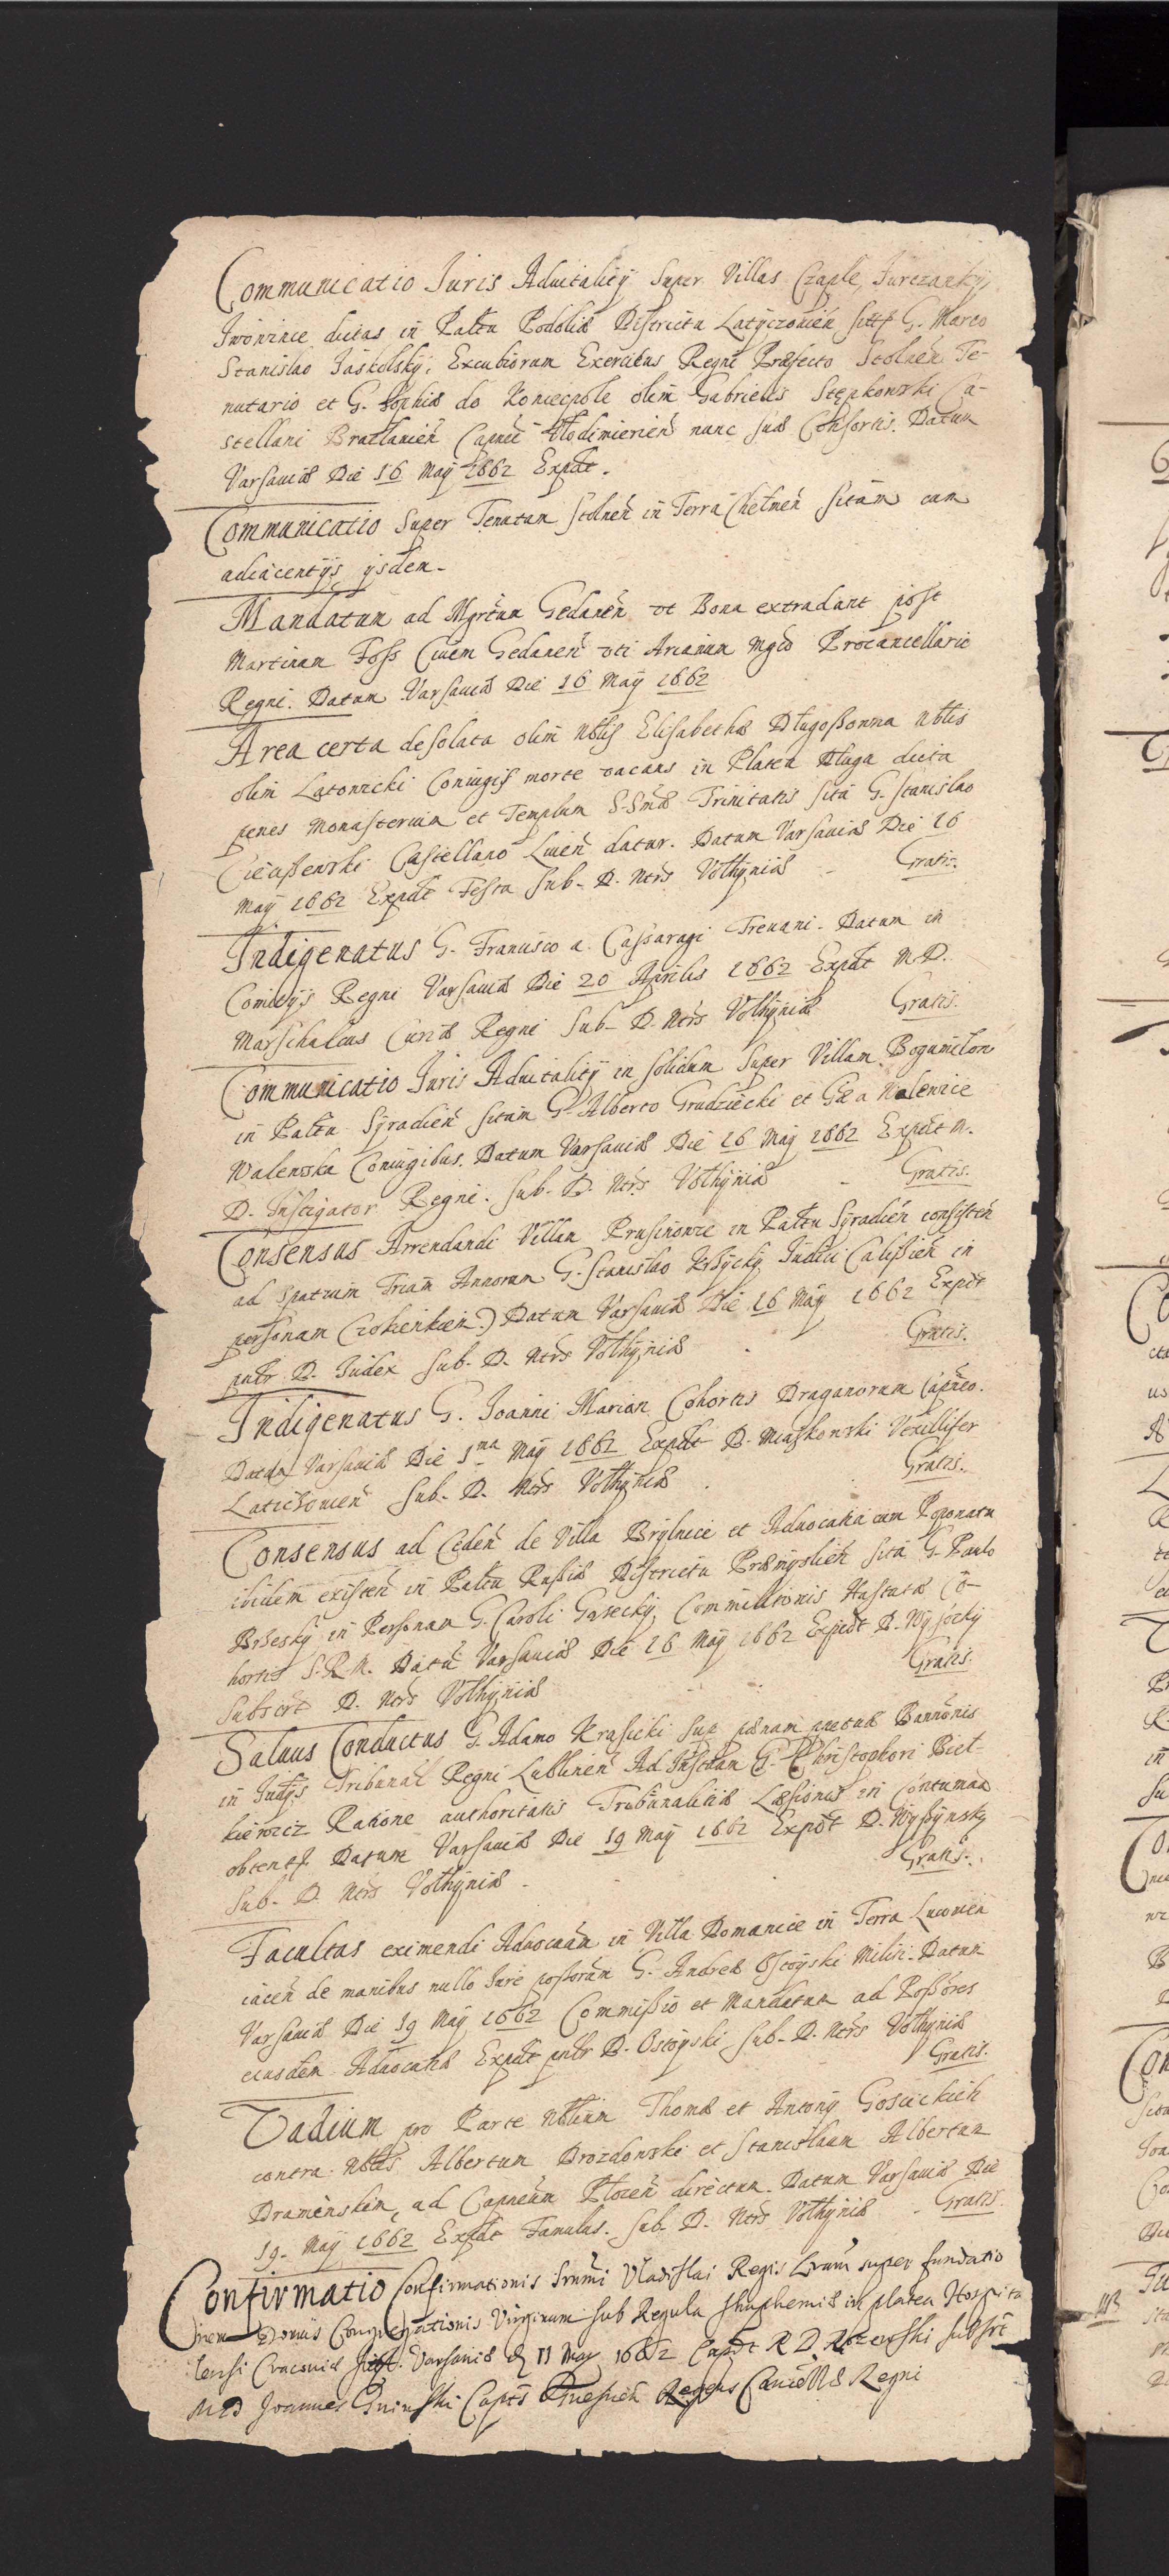 Communicatio Iuris Aduitalitÿ Super Villas Czaple, Iurczanky,
Iwonince dictas in Palttu Podoliæ Districtu Latÿczouień G. Marco
Stanislao Iaskolsky, Excubiorum Exercitus Regni Præfecto Stolneń Te-
nutario et G. Sophiæ do Koniecpole olim Gabrielis Stępkowski Ca-
stellani Bratlauień Capnei Vlodimirień nunc suæ Consortis. Datum
Varsauiæ Die 16 Maÿ 1662 Expdt.
Communicatio Super Tenutam Stolneń in Terra Chelmeń sitam cum
adiacentÿs ÿsdem.
Mandatum ad Mgrtum Gedaneń vt Bona extradant post
Martinum Foss Ciuem Gedaneń vti Arianum Mgco Procancellario
Regni. Datum Varsauiæ Die 16 Maÿ 1662
Area certa desolata olim Nblis Elisabethæ Dlugoßonna Nblis
olim Latonicki Coniugis morte vacans in Platea Dluga dicta
penes Monasterium et Templum S-Smæ Trinitatis sita G. Stanislao
Cieciszewski Castellano Liueń datur. Datum Varsauiæ Die 16
Maÿ 1662 Expdt Festa Sub. D. Ntrs Volhÿniæ - Gratis.
Indigenatus G. Francisco a Cassaragi Treuani. Datum in
Comitÿs Regni Varsauiæ Die 20 Aprilis 1662 Expdt M.D.
Marschalcus Curiæ Regni Sub. D. Ntrs Volhÿniæ Gratis.
Communicatio Iuris Aduitalitÿ in solidum Super Villam Bogumilow
in Palttu Sÿradień sitam G. Alberto Grudziecki et Gæ a Walewice
Walewska Coniugibus. Datum Varsauiæ Die 16 Maÿ 1662 Expdt M.
D. Instigator Regni. Sub. D. Ntrs Volhÿniæ - Gratis.
Consensus Arrendandi Villam Prusinowice in Palttu Sÿradień consisteń
ad Spatium Trium Annorum G. Stanislao Iudici Calißień in
personam Datum Varsauiæ Die 16 Maÿ 1662 Expdt
pntr D. Iudex Sub. D. Ntrs Volhÿniæ . Gratis.
Indigenatus G. Joanni Marion Cohortis Draganorum Capneo.
Datum Varsauiæ Die 1ma Maÿ 1662 Expdt D. Miaskowski Vexillifer
Latichouień Sub. D. Ntrs Volhÿniæ . Gratis.
Consensus ad Cedeń de Villa Brÿlnice et Aduocatia cum Poponatu
ibidem existeń in Palttu Russiæ Districtu Præmÿslień sita G. Paulo
Brzeskÿ in Personam G. Caroli Gąseckÿ Commilitonis Hastatæ Co-
hortis S.R.M. Datum Varsauiæ Die 16 Maÿ 1662 Expdt D. Wÿsockÿ
Subscrt D. Ntrs Volhÿniæ Gratis.
Saluus Conductus G. Adamo Krasicki Sup pœnam Bannonis
in Iudÿs Tribunal Regni Lublineń Ad G. Christophori Biet-
kiewicz Ratione authoritatis Tribunalitiæ Læsionis in Contumaa
obtent. Datum Varsauiæ Die 19 Maÿ 1662 Expdt D. Wÿßÿnskÿ
Sub. D. Ntrs Volhÿniæ - Gratis.
Facultas eximendi Aduocaam in Villa Domanice in Terra Lucouień
iaceń de manibus nullo Iure poßorum G. Andreæ Ostoÿski Militi. Datum
Varsauiæ Die 19 Maÿ 1662 Commißio et Mandatum ad Poßores
eiusdem Aduocatiæ Expdt pntr D. Ostoÿski Sub. D. Ntrs Volhÿniæ
Gratis.
Vadium pro Parte Nblium Thomæ et Antonÿ Gosiickich
contra Nbles Albertum Drozdowski et Stanislaum Albertum
Dramińskim, ad Capneum Ploceń directum. Datum Varsauiæ Die
19. Maÿ 1662 Expdt Famulus. Sub. D. Ntrs Volhÿniæ - Gratis.
Confirmatio Confirmationis Srnmi Vladislai Regis Lrarum super fundatio
nem Domus Congregationis Virginum sub Regula in platea Hospita
lensi Cracouiæ Varsauiæ d 11 May 1662 Expdt R D. subscrt
M D Joannes Gninski Capts Gnesneń Regens Cancellæ Regni